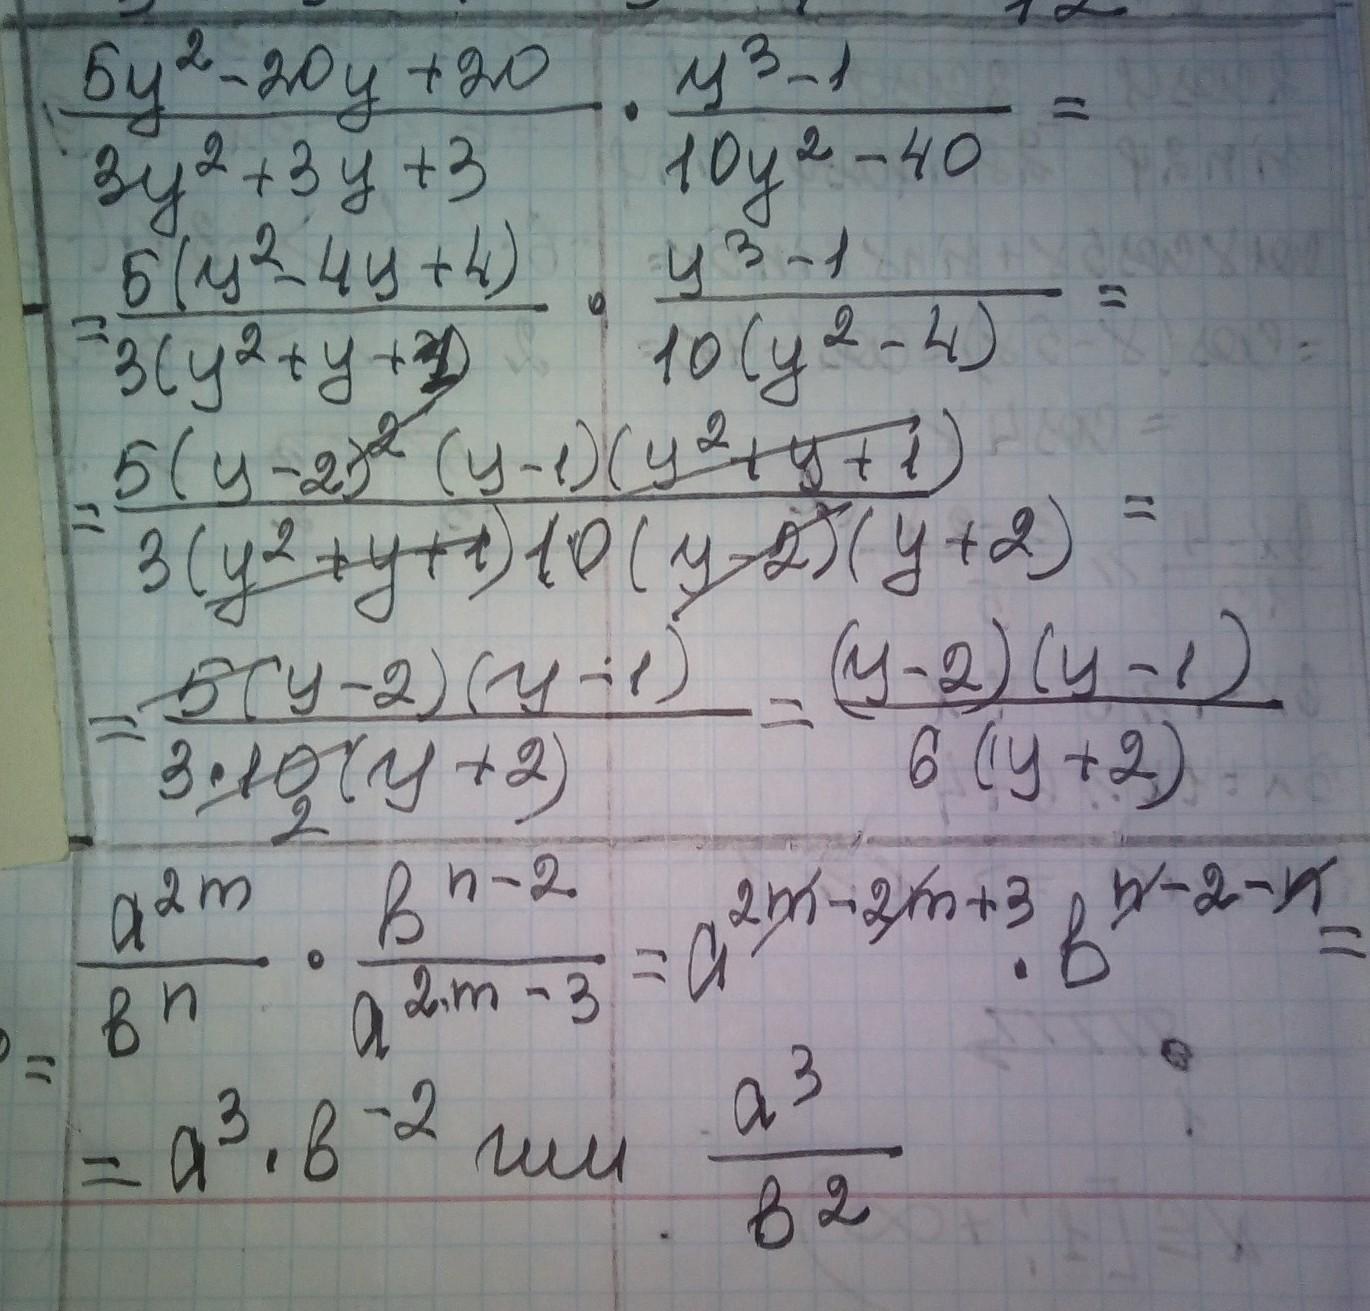 5y² - 20y + 20 / 3y² + 3y + 3 · y³ - 1 / 10y² - 40 =
= 5(y² - 4y + 4) / 3(y² + y + 1) · y³ - 1 / 10(y² - 4) =
= 5(y - 2)² (y - 1)(y² + y + 1) / 3(y² + y + 1) 10(y - 2)(y + 2) =
= 5(y - 2)(y - 1) / 3·10(y + 2) 2 = (y - 2)(y - 1) / 6(y + 2)
a^2m / в^n · в^n-2 / a^2·m-3 = a^2m-2m+3 · в^n-2-n =
= a³ · в^-2 или a³ / в²